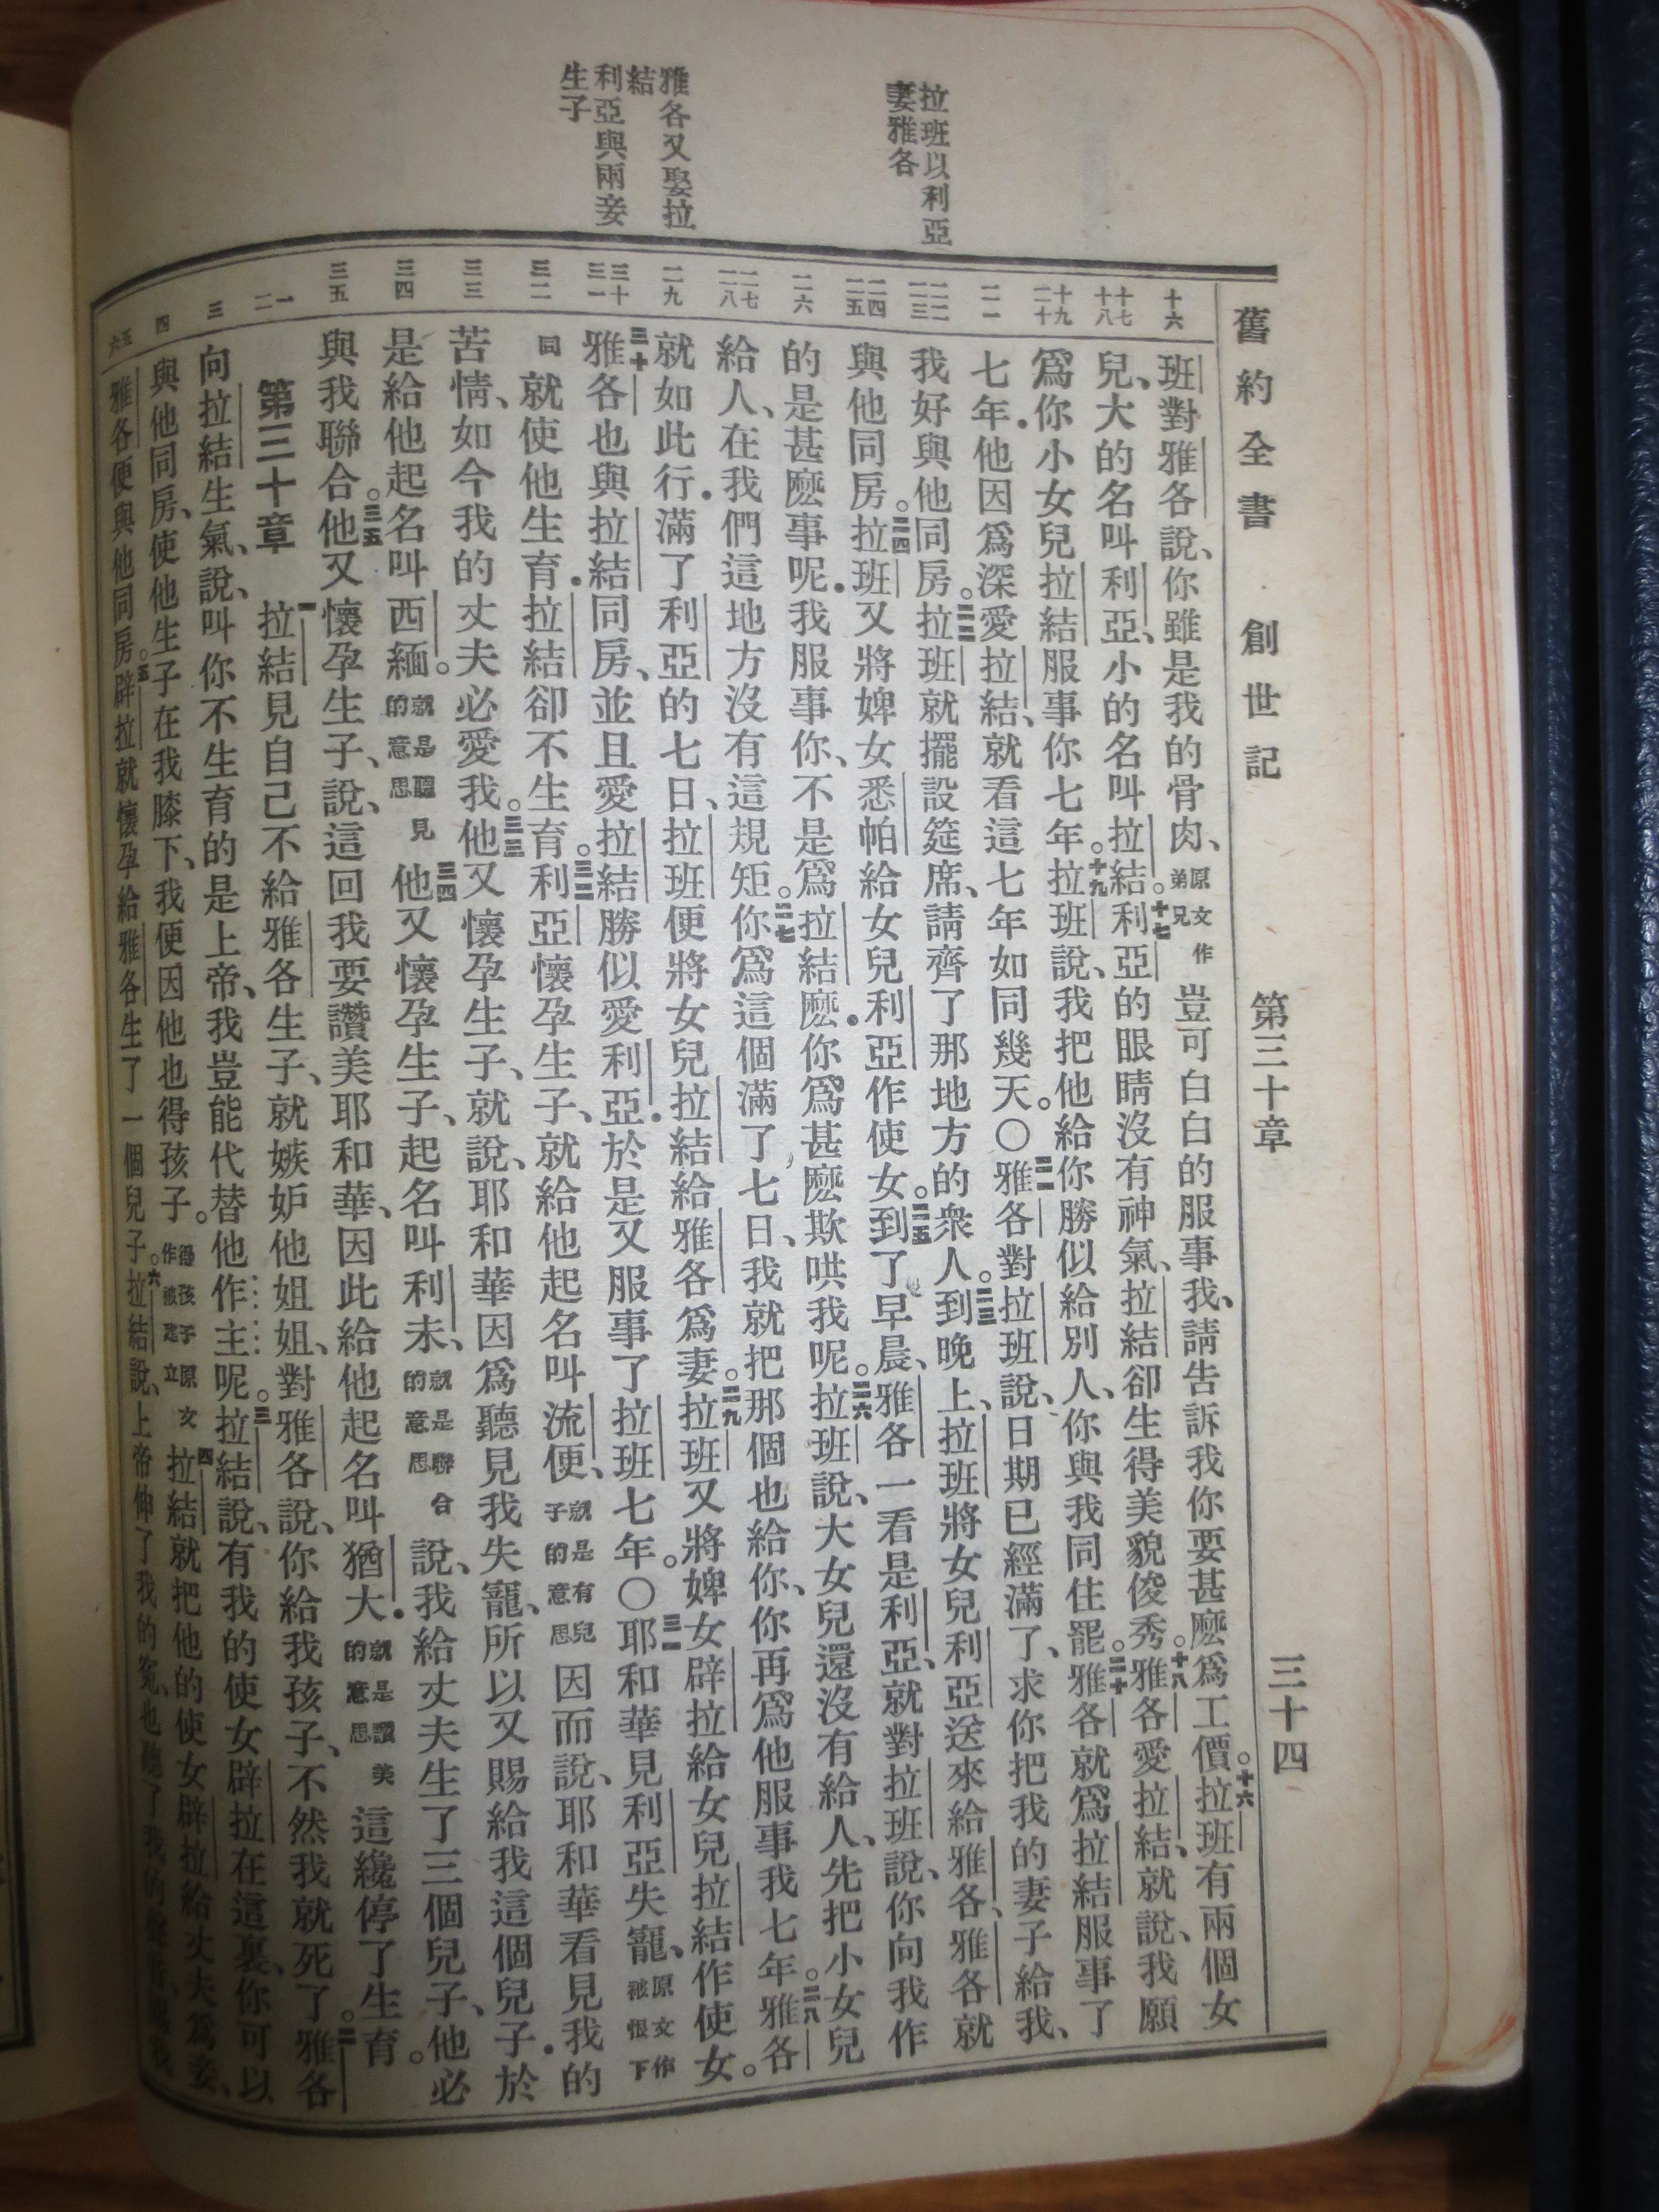 舊約全書　創世記　第三十章　三十四
拉班以利亞
妻雅各
雅各又娶拉
結
利亞與兩妾
生子
十六
十七
十八
十九
二十
二一
二二
二三
二四
二五
二六
二七
二八
二九
三十
三一
三二
三三
三四
三五
一
二
三
四
五
六
班對雅各說、你雖是我的骨肉、原文作弟兄豈可白白的服事我、請告訴我你要甚麼爲工價。十六拉班有兩個女
兒、大的名叫利亞、小的名叫拉結。十七利亞的眼睛沒有神氣、拉結卻生得美貌俊秀。十八雅各愛拉結、就說、我願
爲你小女兒拉結服事你七年。十九拉班說、我把他給你勝似給別人、你與我同住罷。二十雅各就爲拉結服事了
七年．他因爲深愛拉結、就看這七年如同幾天。〇二一雅各對拉班說、日期已經滿了、求你把我的妻子給我、
我好與他同房。二二拉班就擺設筵席、請齊了那地方的衆人。二三到晚上、拉班將女兒利亞送來給雅各、雅各就
與他同房。二四拉班又將婢女悉帕給女兒利亞作使女。二五到了早晨、雅各一看是利亞、就對拉班說、你向我作
的是甚麼事呢．我服事你、不是爲拉結麼．你爲甚麼欺哄我呢。二六拉班說、大女兒還沒有給人、先把小女兒
給人、在我們這地方沒有這規矩。二七你爲這個滿了七日、我就把那個也給你、你再爲他服事我七年。二八雅各
就如此行．滿了利亞的七日、拉班便將女兒拉結給雅各爲妻。二九拉班又將婢女辟拉給女兒拉結作使女。
三十雅各也與拉結同房、並且愛拉結勝似愛利亞．於是又服事了拉班七年。〇三一耶和華見利亞失寵、原文作被恨下
同就使他生育．拉結卻不生育。三二利亞懷孕生子、就給他起名叫流便、就是有兒子的意思因而說、耶和華看見我的
苦情、如今我的丈夫必愛我。三三他又懷孕生子、就說、耶和華因爲聽見我失寵、所以又賜給我這個兒子．於
是給他起名叫西緬。就是聽見的意思三四他又懷孕生子、起名叫利未、就是聯合的意思說、我給丈夫生了三個兒子、他必
與我聯合。三五他又懷孕生子、說、這回我要讚美耶和華、因此給他起名叫猶大．就是讚美的意思這纔停了生育。
第三十章　一拉結見自己不給雅各生子、就嫉妒他姐姐、對雅各說、你給我孩子、不然我就死了。二雅各
向拉結生氣、說、叫你不生育的是上帝、我豈能代替他作主呢。三拉結說、有我的使女辟拉在這裏、你可以
與他同房、使他生子在我膝下、我便因他也得孩子。得孩子原文作被建立四拉結就把他的使女辟拉給丈夫爲妾、
雅各便與他同房。五辟拉就懷孕給雅各生了一個兒子。六拉結說、上帝伸了我的冤、也聽了我的